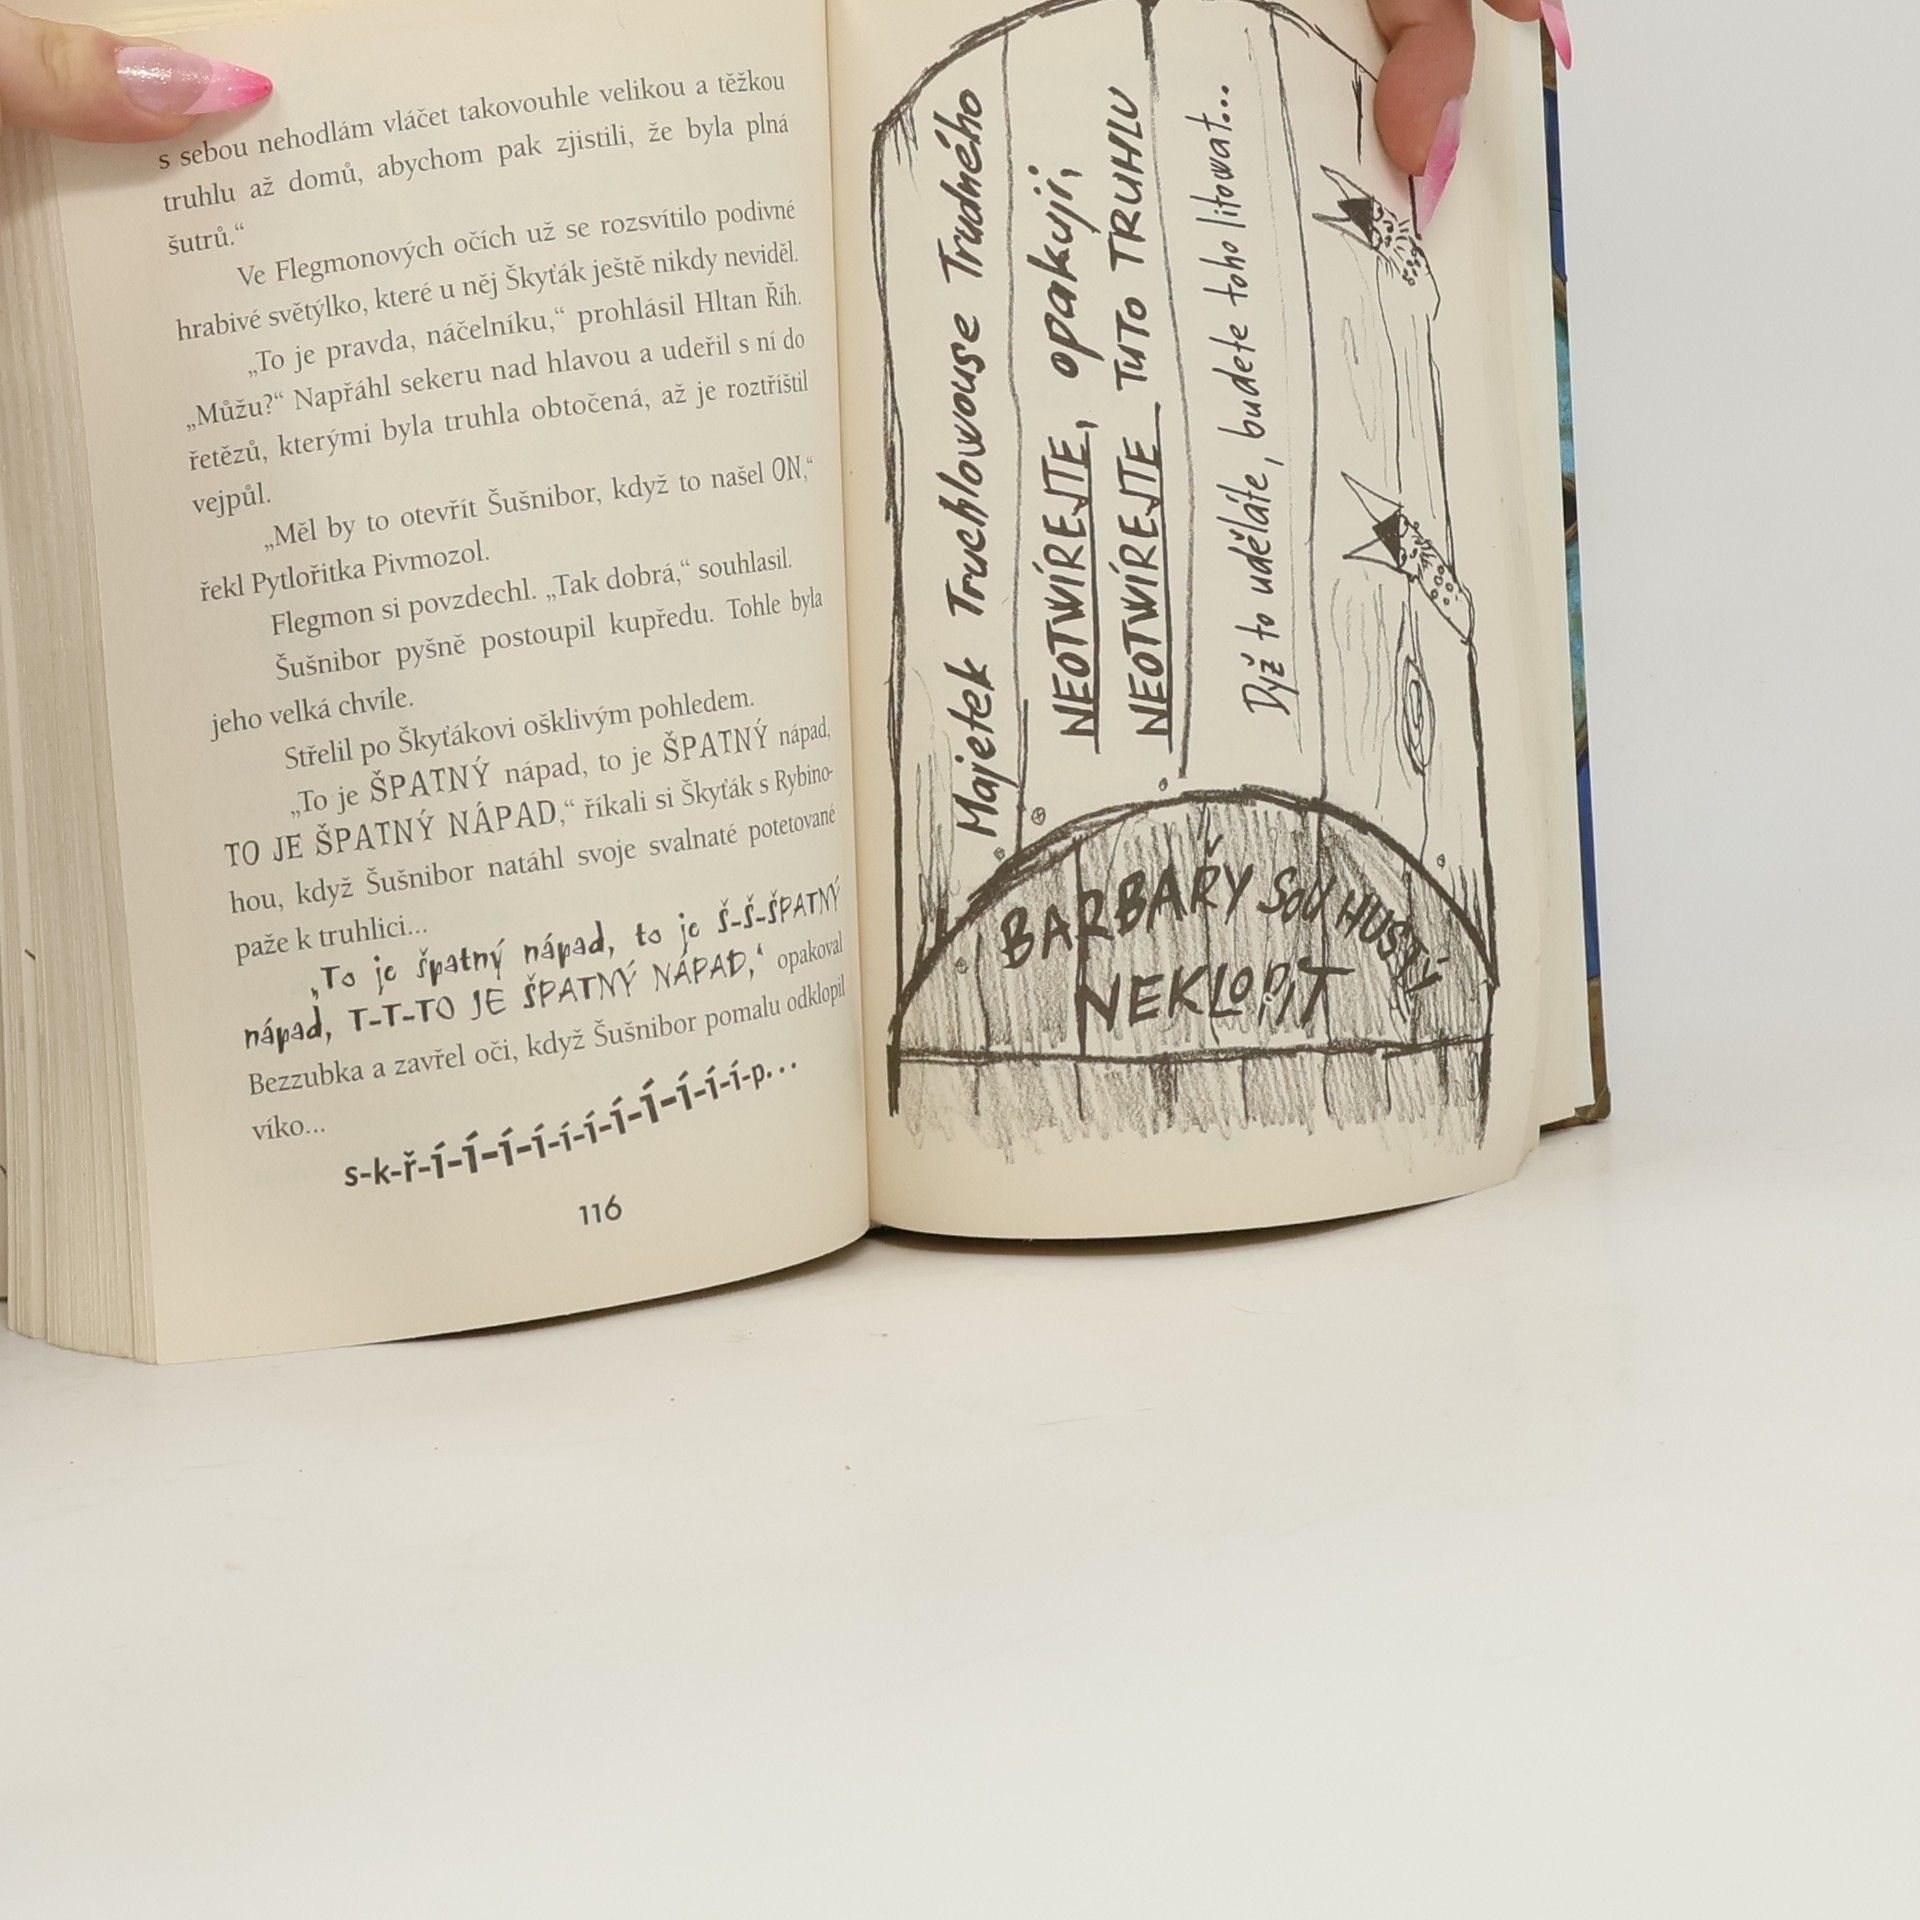 s sebou nehodlám vláčet takovouhle velikou a těžkou
truhlu až domů, abychom pak zjistili, že byla plná
šutrů.“
Ve Flegmonových očích už se rozsvítilo podivné
hrabivé světýlko, které u něj Škyťák ještě nikdy neviděl.
„To je pravda, náčelníku,“ prohlásil Hltan Říh.
„Můžu?“ Napřáhl sekeru nad hlavou a udeřil s ní do
řetězů, kterými byla truhla obtočená, až je roztříštil
vejpůl.
„Měl by to otevřít Šušnibor, když to našel ON,“
řekl Pytlořitka Pivmozol.
Flegmon si povzdechl. „Tak dobrá,“ souhlasil.
Šušnibor pyšně postoupil kupředu. Tohle byla
jeho velká chvíle.
Střelil po Škyťákovi ošklivým pohledem.
„To je ŠPATNÝ nápad, to je ŠPATNÝ nápad,
TO JE ŠPATNÝ NÁPAD,“ říkali si Škyťák s Rybino-
hou, když Šušnibor natáhl svoje svalnaté potetované
paže k truhlici...
„To je špatný nápad, to je Š-Š-ŠPATNÝ
nápad, T-T-TO JE ŠPATNÝ NÁPAD,‘ opakoval
Bezzubka a zavřel oči, když Šušnibor pomalu odklopil
víko...
s-k-ř-í-í-í-í-í-í-í-í-í-í-í-p...
116
Majetek Truchlowouse Trudného
NEOTWÍREJTE, opakuji,
NEOTWÍREJTE TUTO TRUHLU
Dyž to uděláte, budete toho litowat...
BARBAŘY SOU HUSTÝ
NEKLOPIT